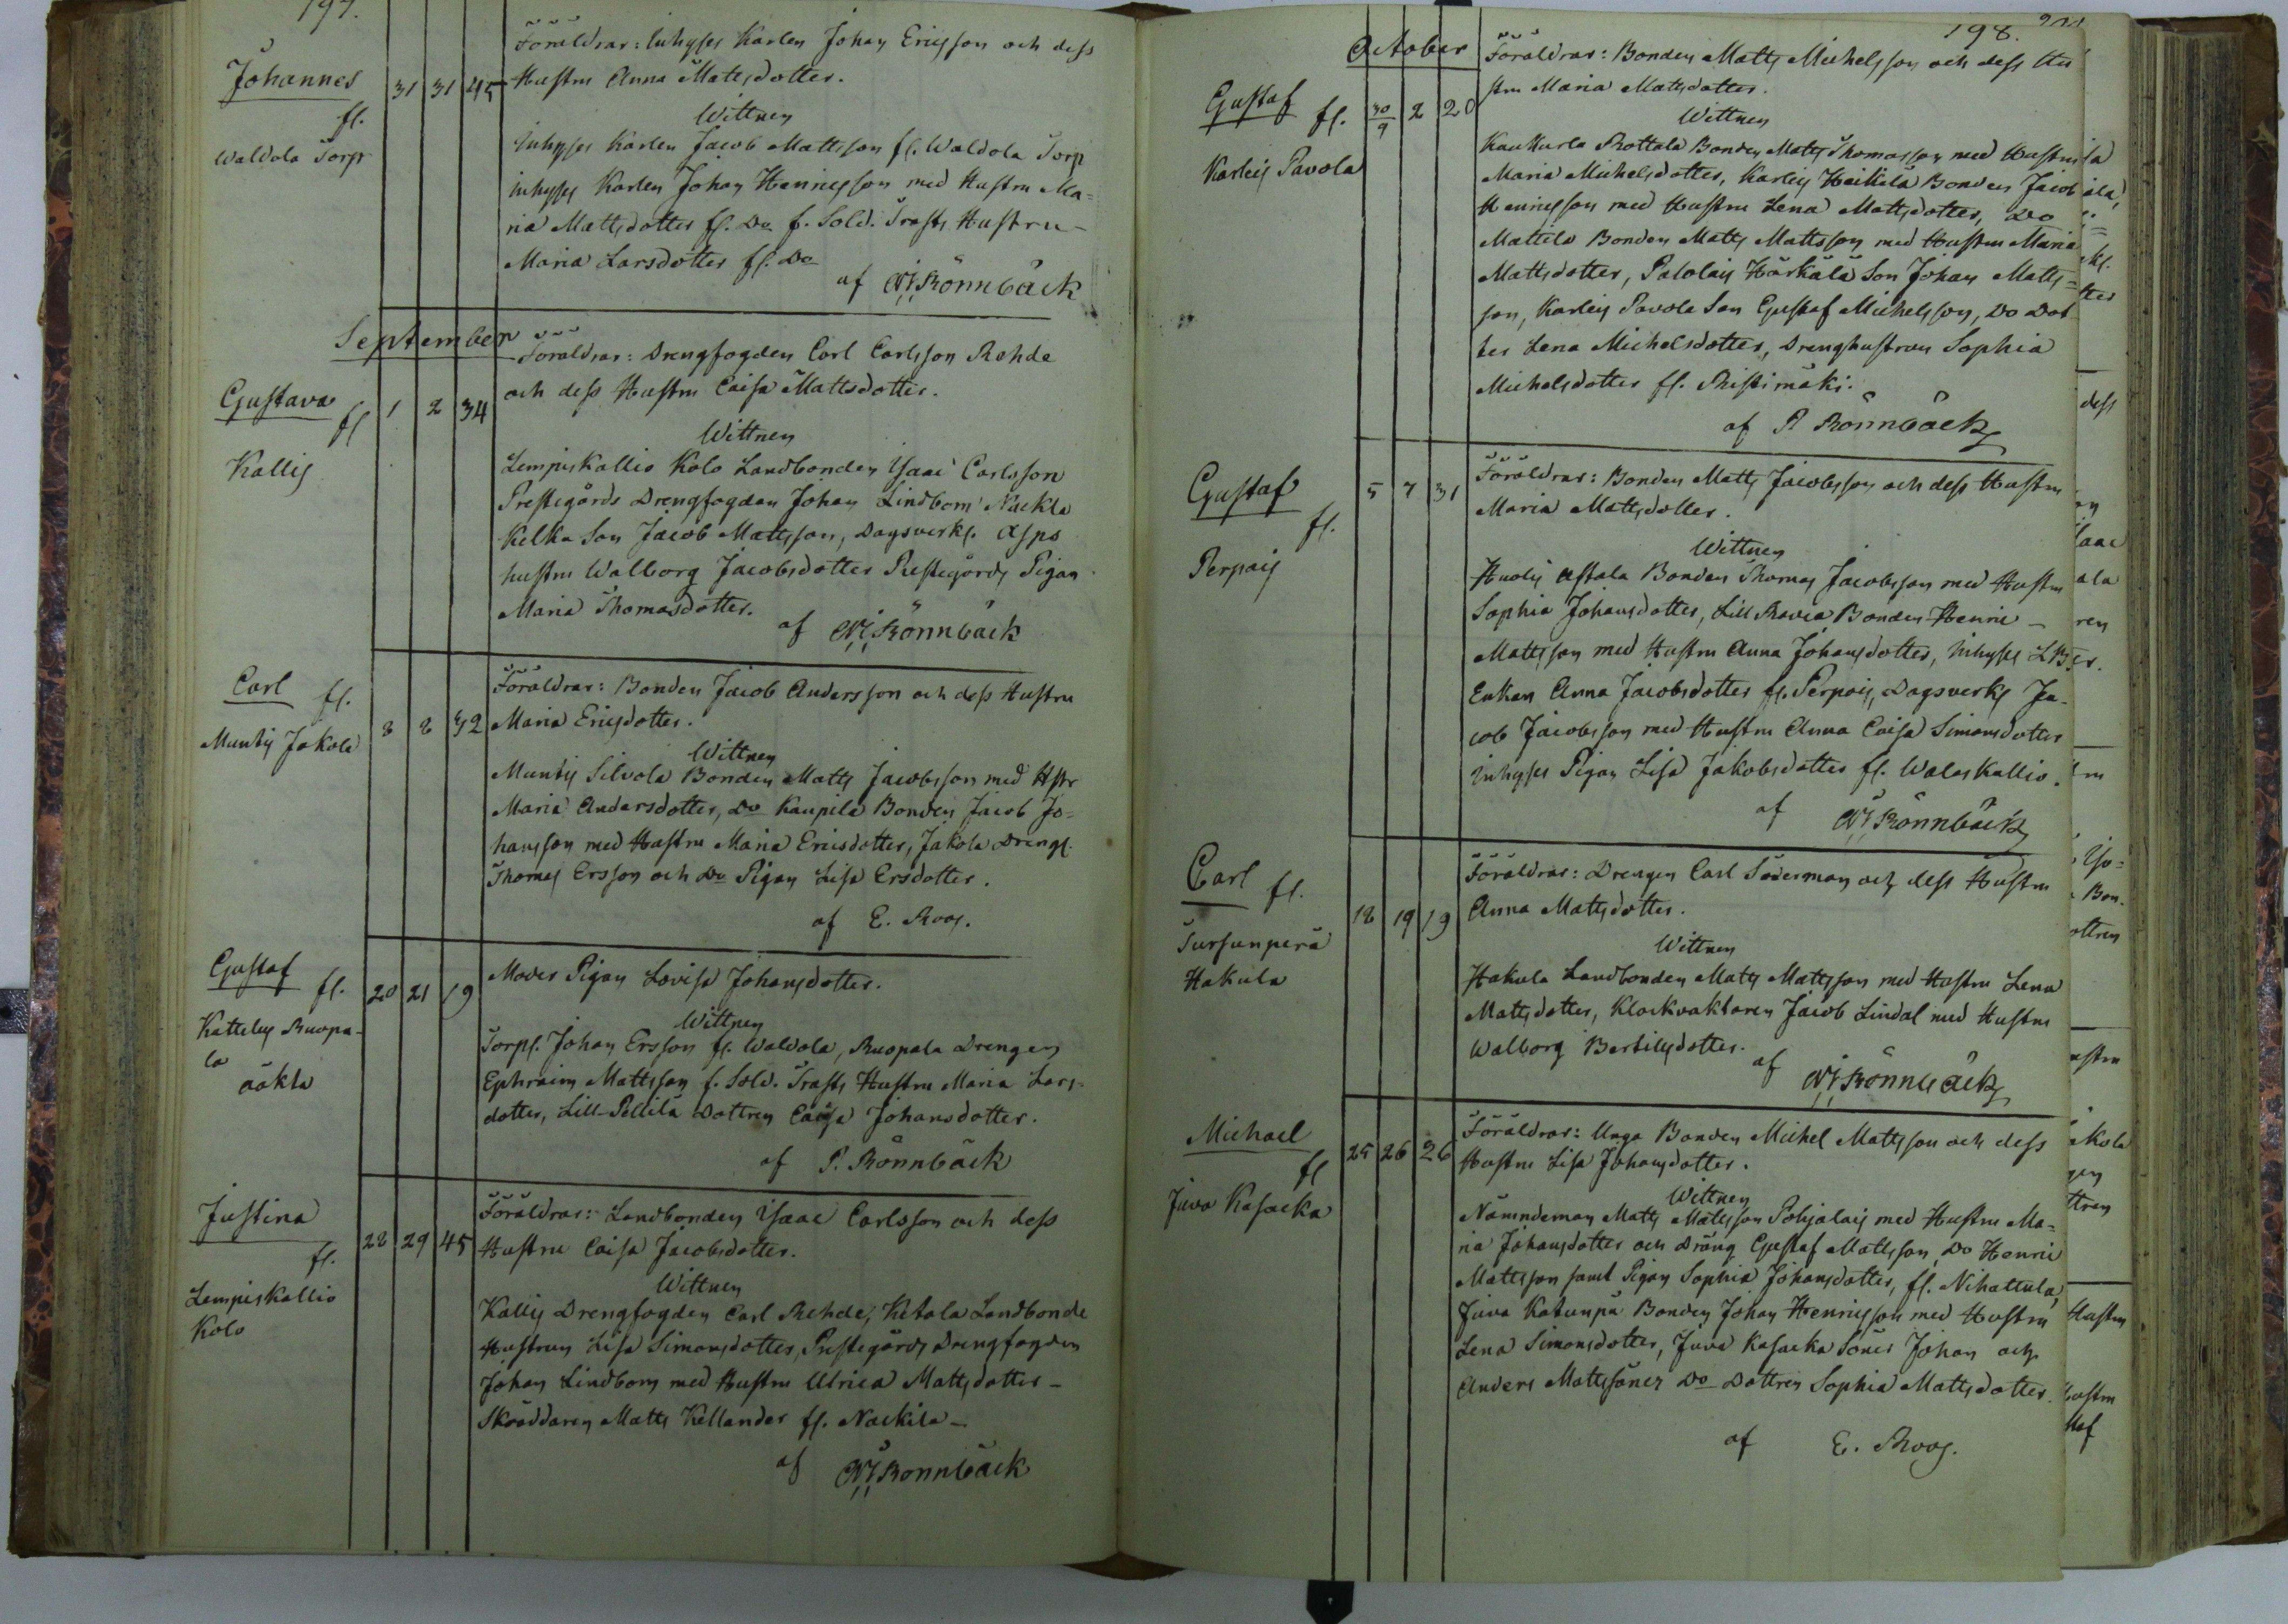 197.
Johannes
fl.
Waldola Torp
31 31 45
Föräldrar: Inhyses Karlen Johan Ericsson och dess
Hustru Anna Matsdotter.
Wittnen
Inhyses Karlen Jacob Mattsson fr. Waldola Torp
inhyses Karlen Johan Henricsson med Hustru Ma=
ria Mattsdotter fr. Do f. Sold. Trasts Hustru
Maria Larsdotter fr. Do
af Rönnbäck
September
Gustava
fl
Kallis
1 2 34
Föräldrar: Drengfogden Carl Carlsson Rehde
och dess Hustru Caisa Mattsdotter.
Wittnen
Lempiskallio Kolo Landbonden Isaac Carlsson
Prestegårds Drengfogden Johan Lindbom Nackila
Kelka Son Jacob Mattsson, Dagsverks. Asps
hustru Walborg Jacobsdotter Prestegårds Pigan
Maria Thomasdotter.
af Rönnbäck
Carl fl.
Muntis Jakola
8 8 32
Föräldrar: Bonden Jacob Andersson och dess Hustru
Maria Ericsdotter.
Wittnen
Muntis Silvola Bonden Matts Jacobsson med Hstr
Maria Andersdotter, Do Kaupila Bonden Jacob Jo=
hansson med Hustru Maria Ericsdotter, Jakola Drengs.
Thomas Ersson och Do Pigan Lisa Ersdotter.
af E. Roos.
Gustaf fl.
Kattelus Ruopa-
la
oäkta
20 21 19
Moder Pigan Lovisa Johansdotter.
Wittnen
Torps. Johan Ersson fr. Waldola, Ruopala Drengen
Ephraim Mattsson f. Sold. Trasts Hustru Maria Lars-
dotter, Lill-Pellilä Dottren Caisa Johansdotter.
af P. Rönnbäck
Justina
fl.
Lempiskallio
Kolo
28 29 45
Föräldrar: Landbonden Isaac Carlsson och dess
Hustru Caisa Jacobsdotter.
Wittnen
Kallis Drengfogden Carl Rehde, Ketola Landbonde
Hustrun Lisa Simonsdotter, Prestegårds Drengfogden
Johan Lindbom med Hustru Ulrica Mattsdotter
Skräddaren Matts Kellander fr. Nackila
af Rönnbäck
198.
October
Gustaf fl.
Karleis Pavola
30/9 2 20
Föräldrar: Bonden Matts Michelsson och dess Hu
stru Maria Mattsdotter.
Wittnen
Kaukurla Prottala Bonden Matts Thomasson med Hustru
Maria Michelsdotter, Karleis Heikilä Bonden Jacob
Henricsson med Hustru Lena Mattsdotter, Do
Mattila Bonden Matts Mattsson med Hustru Maria
Mattsdotter, Palolais Härkälä Son Johan Matts=
son, Karleis Pavola Son Gustaf Michelsson, Do Dot
ter Lena Michelsdotter, Drenghustrun Sophia
Michelsdotter fr. Ristimäki.
af P Rönnbäck
Gustaf
fl.
Perpois
5 7 31
Föräldrar: Bonden Matts Jacobsson och dess Hustru
Maria Mattsdotter.
Wittnen
Huolis Astala Bonden Thomas Jacobsson med Hustru
Sophia Johansdotter, Lill Bonden Henric
Mattsson med Hustru Anna Johansdotter, Inhyses
Enkan Anna Jacobsdotter fr. Perpois, Dagsverks Ja-
cob Jacobsson med Hustru Anna Caisa Simonsdotter
Inhyses Pigan Lisa Jakobsdotter fr. Walaskallio.
af Rönnbäck
Carl fl.
Tursunperä
Hakula
18 19 19
Föräldrar: Drengen Carl Söderman och dess Hustru
Anna Mattsdotter.
Wittnen
Hakula Landbonden Matts Mattsson med Hustru Lena
Mattsdotter, Klockvaktaren Jacob Lindal med Hustru
Walborg Bertilsdotter.
af Rönnbäck
Michael
fl
Juva Kasacka
25 26 26
Föräldrar: Unga Bonden Michel Mattsson och dess
Hustru Lisa Johansdotter.
Wittnen
Nämndeman Matts Mattsson Pohjalais med Hustru Ma=
ria Johansdotter och Dräng Gustaf Mattsson, Do Henric
Mattsson samt Pigan Sophia Johansdotter, fr. Nihattula,
Juva Katunpä Bonden Johan Henricsson med Hustru
Lena Simonsdotter, Juva Kasacka Söner Johan och
Anders Mattssöner Do Dottren Sophia Mattsdotter.
af E. Roos.